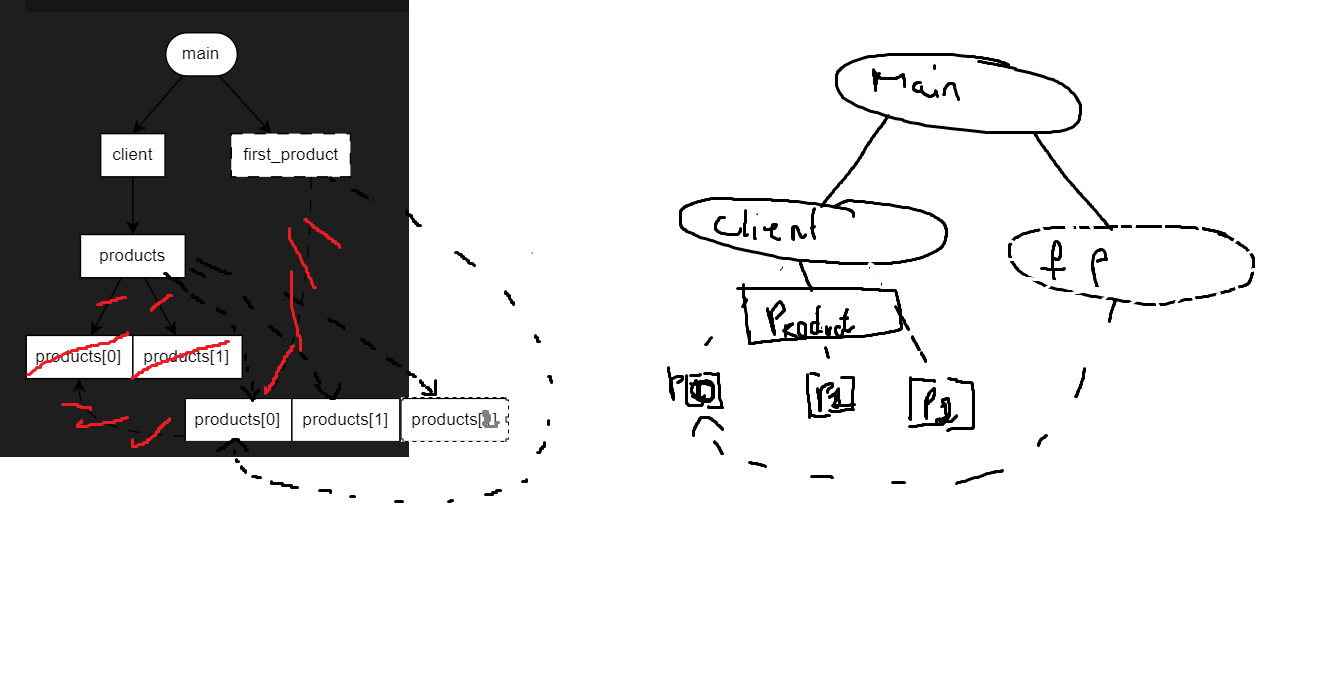 main
client
first_product
products
products[0]
products[1]
products[0]
products[1]
Main
Client
f p
Product
P1